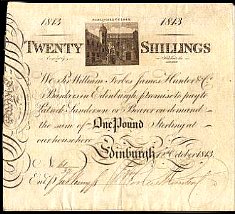 1813 1813
TWENTY SHILLINGS
We Sir William Forbes James Hunter & Co
Bankers in Edinburgh promise to pay to
Sanderson or Bearer on demand
the sum of One Pound Sterling at
our house here
Edinburgh October 1813
No